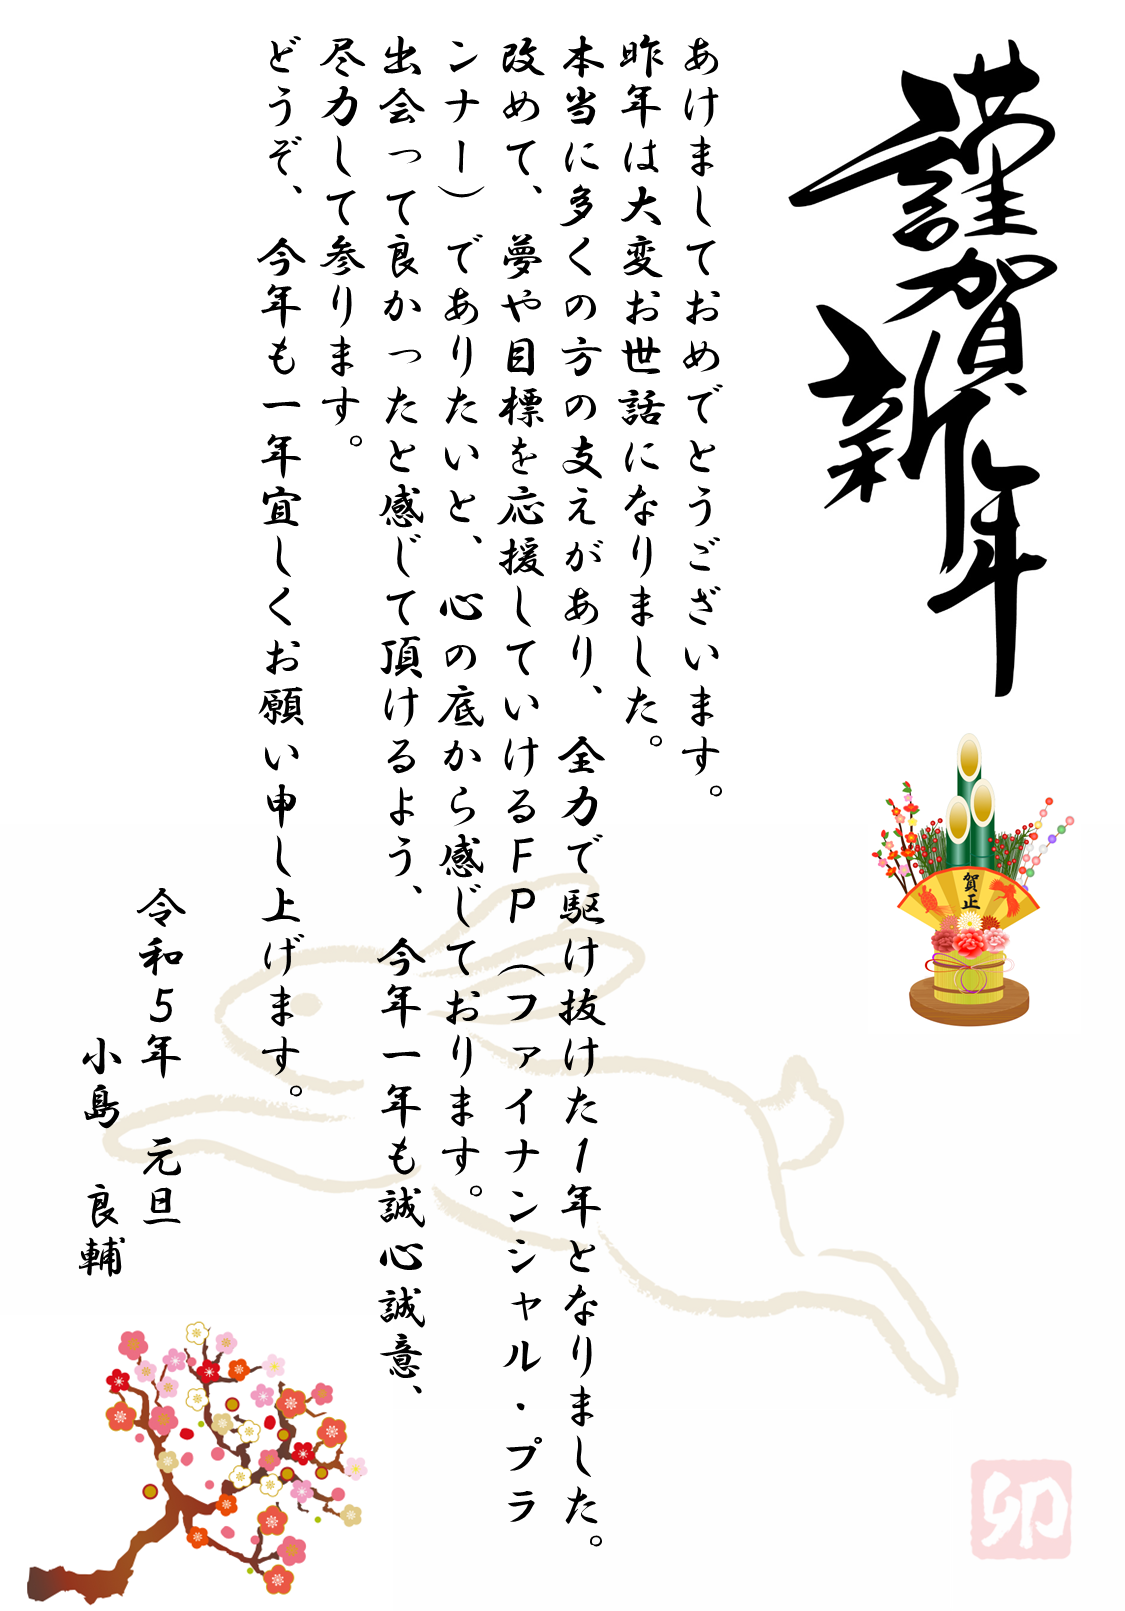 謹賀新年
あけましておめでとうございます。
昨年は大変お世話になりました。
本当に多くの方の支えがあり、全力で駆け抜けた1年となりました。
改めて、夢や目標を応援していけるFP（ファイナンシャル・プラ
ンナー）でありたいと、心の底から感じております。
出会って良かったと感じて頂けるよう、今年一年も誠心誠意、
尽力して参ります。
どうぞ、今年も一年宜しくお願い申し上げます。
令和5年　元旦
小島　良輔
賀正
卯